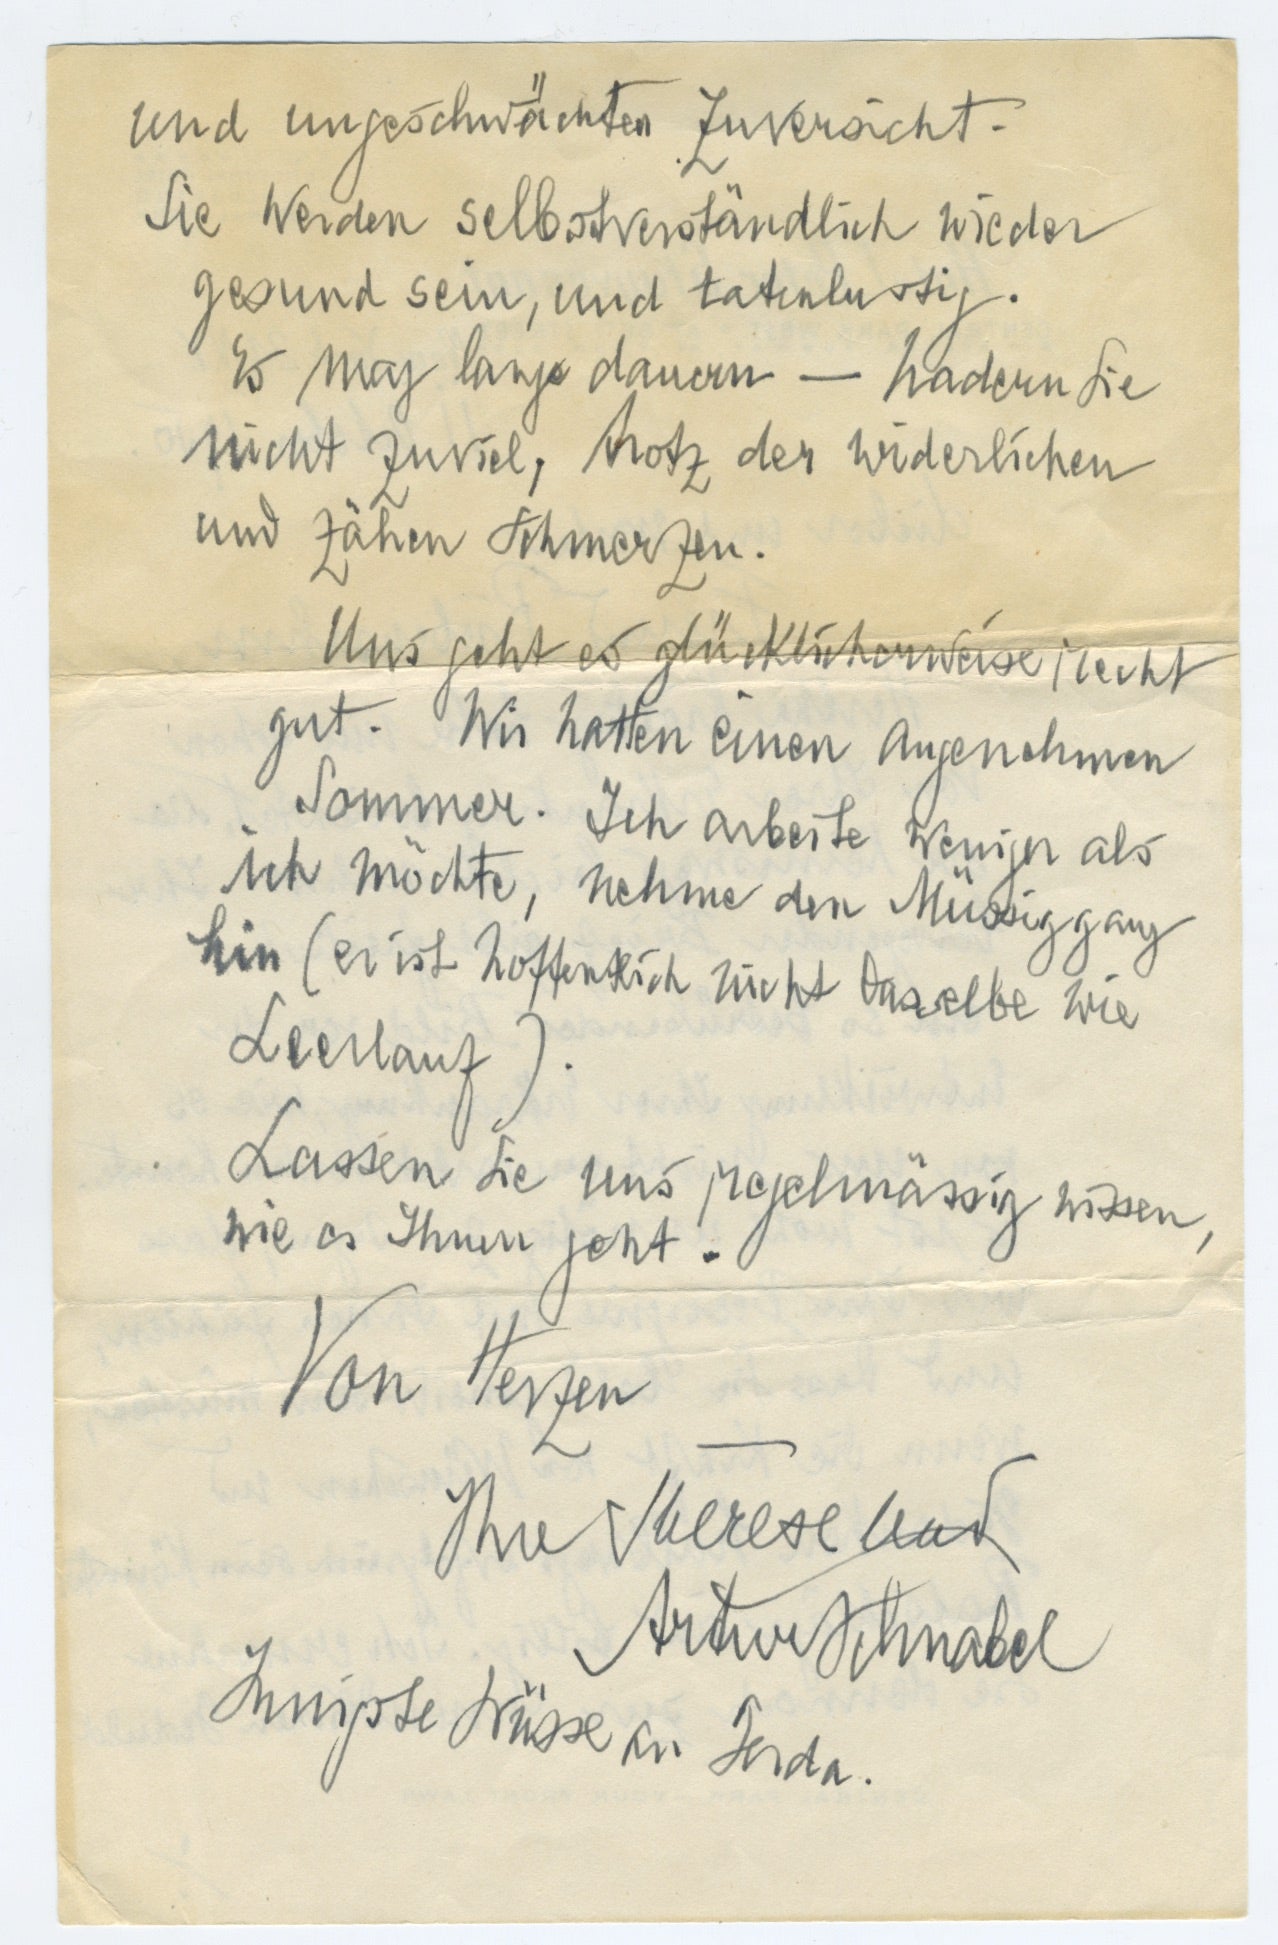 und ungeschwächten Zuversicht.
Sie werden selbstverständlich wieder
gesund sein, und tatenlustig.
Es mag lange dauern — hadern Sie
nicht zuviel, trotz der widerlichen
und zähen Schmerzen.
Uns geht es glücklicherweise recht
gut. Wir hatten einen angenehmen
Sommer. Ich arbeite weniger als
ich möchte, nehme den Müssiggang
hin (er ist hoffentlich nicht dasselbe wie
Leerlauf).
Lassen Sie uns regelmässig wissen,
wie es Ihnen geht.
Von Herzen
Ihre Therese und
Artur Schnabel
Innigste Grüsse an Gerda.